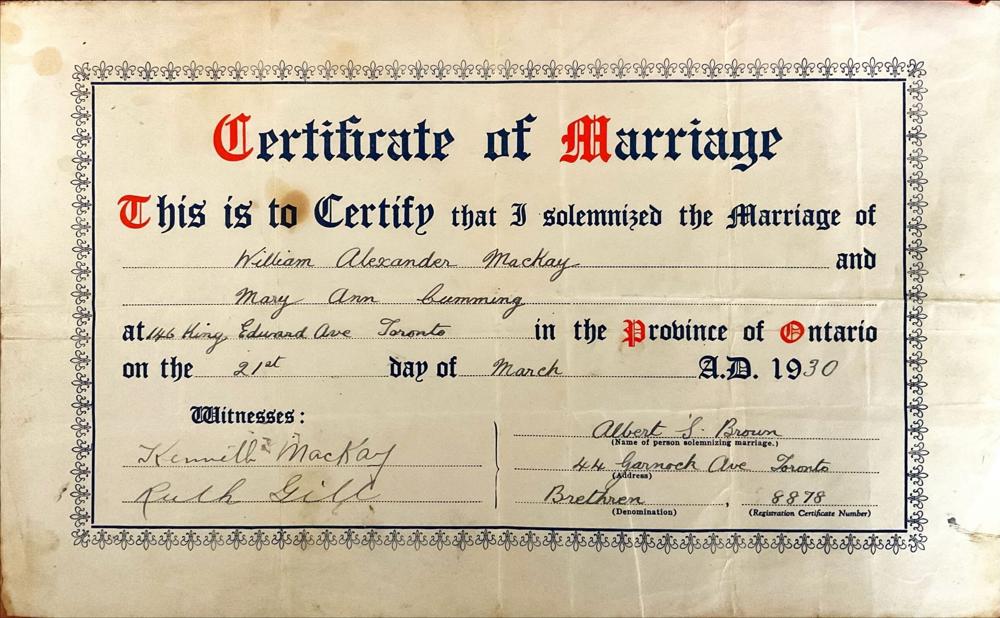 Certificate of Marriage
This is to Certify that I solemnized the Marriage of
William Alexander MacKay and
Mary Ann Cumming
at 146 King Edward Ave Toronto in the Province of Ontario
on the 21st day of March A.D. 1930
Witnesses:
Kenneth MacKay
Ruth Gill
Albert S. Brown
(Name of person solemnizing marriage.)
44 Garnock Ave Toronto
(Address)
Brethren, 8878
(Denomination) (Registration Certificate Number)